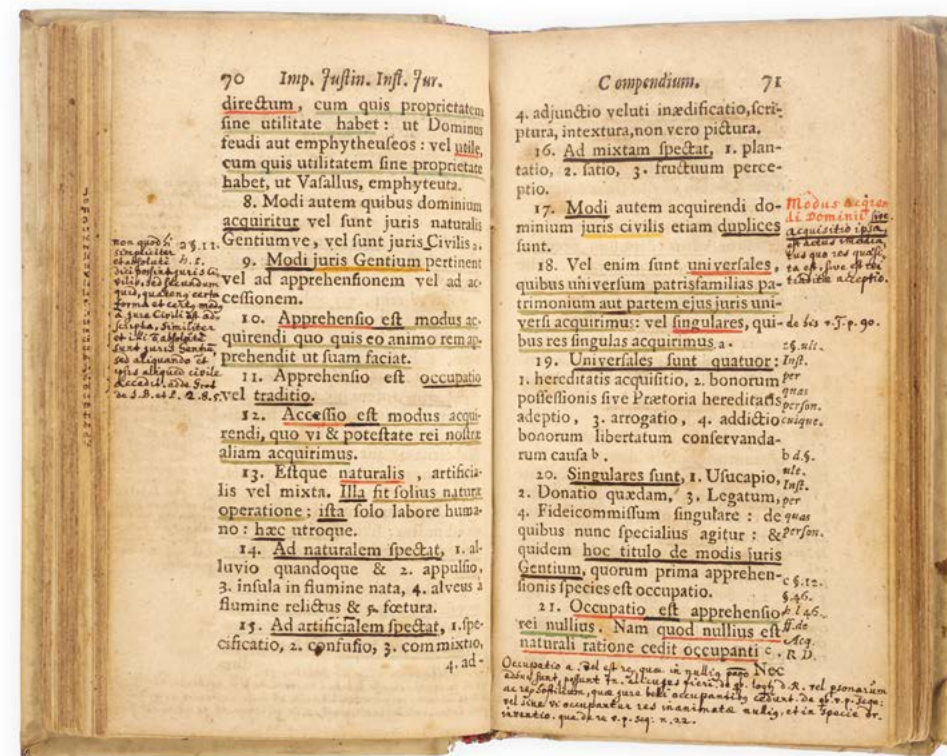 70 Imp. Juſtin. Inſt. Jur.
directum, cum quis proprietatem
ſine utilitate habet: ut Dominus
feudi aut emphytheuſeos: vel utile,
cum quis utilitatem ſine proprietate
habet, ut Vaſallus, emphyteuta.
8. Modi autem quibus dominium
acquiritur vel ſunt juris naturalis
Gentiumve, vel ſunt juris Civilis a.
9. Modi juris Gentium pertinent
vel ad apprehenſionem vel ad ac-
ceſſionem.
10. Apprehenſio eſt modus ac-
quirendi quo quis eo animo rem ap-
prehendit ut ſuam faciat.
11. Apprehenſio eſt occupatio
vel traditio.
12. Acceſſio eſt modus acqui-
rendi, quo vi & poteſtate rei noſtræ
aliam acquirimus.
13. Eſtque naturalis, artificia-
lis vel mixta. Illa fit ſolius naturæ
operatione; iſta ſolo labore huma-
no: hæc utroque.
14. Ad naturalem ſpectat, 1. al-
luvio quandoque & 2. appulſio,
3. inſula in flumine nata, 4. alveus à
flumine relictus & 5. fœtura.
15. Ad artificialem ſpectat, 1. ſpe-
cificatio, 2. confuſio, 3. commixtio,
4. ad-
a §. 11.
h. t.
non quod hi
simpliciter
et absolute
dici possint juris Ci
vilis, sed secundum
quid, quatenq certa
forma et certo modo
a jure Civili
scripta, similiter
et illi absolute
sunt juris Gentiu,
sed aliquando et
ipsis aliquid civile
accedit. adde Grot
de J. B. et P. 2. 8. 5.
Compendium. 71
4. adjunctio veluti inædificatio, ſcri-
ptura, intextura, non vero pictura.
16. Ad mixtam ſpectat, 1. plan-
tatio, 2. ſatio, 3. fructuum perce-
ptio.
17. Modi autem acquirendi do-
minium juris civilis etiam duplices
ſunt.
18. Vel enim ſunt univerſales,
quibus univerſum patrisfamilias pa-
trimonium aut partem ejus juris uni-
verſi acquirimus: vel ſingulares, qui-
bus res ſingulas acquirimus a.
19. Univerſales ſunt quatuor:
1. hereditatis acquiſitio, 2. bonorum
poſſeſſionis ſive Prætoria hereditatis
adeptio, 3. arrogatio, 4. addictio
bonorum libertatum conſervanda-
rum cauſa b.
20. Singulares ſunt, 1. Uſucapio,
2. Donatio quædam, 3. Legatum,
4. Fideicommiſſum ſingulare: de
quibus nunc ſpecialius agitur: &
quidem hoc titulo de modis juris
Gentium, quorum prima apprehen-
ſionis ſpecies eſt occupatio.
21. Occupatio eſt apprehenſio
rei nullius. Nam quod nullius eſt
naturali ratione cedit occupanti c.
Nec
Modus acqren
di Dominii sive
acquisitio ipsa
est actus media
tus quo res quæsi-
ta est, sive est rei
traditæ acceptio.
de his v. J. p. 90.
a §. ult.
Inſt.
per
quas
perſon.
cuique.
b d. §.
ult.
Inſt.
per
quas
perſon.
c §. 12.
§. 46.
ff. de
Acq.
R D.
Occupatio a. vel est re, quæ in nulliq
vel sine vi occupantur res inanimatæ nulliq, et in specie dr.
inventio. qua de re v. p. seq. n. 22.